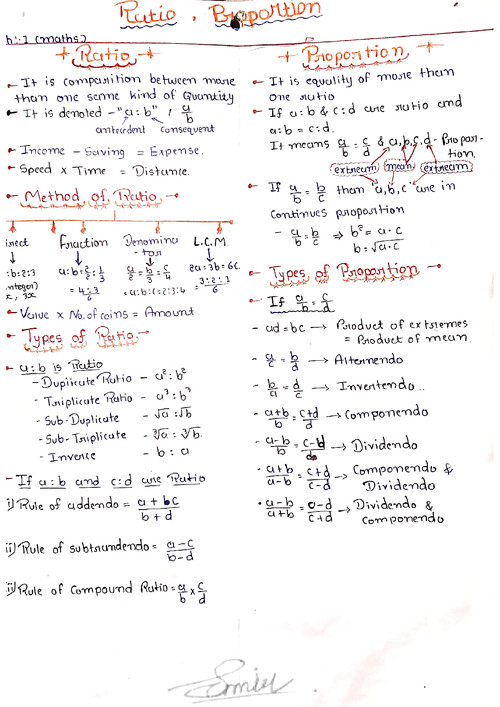 Ratio , Proportion
h:-1 (maths)
+ Ratio +
- It is comparition between more
than one same kind of Quantity
- It is denoted - "a:b" , a/b
antecdent consequent
- Income - Saving = Expense.
- Speed x Time = Distance.
- Method of Ratio -
irect
:b:2:3
integer)
x, 3x
Fraction
a:b = 2/2 : 1/3
= 4:3/6
Denomina-
tor
a/2 = b/3 = c/4
= a:b:c = 2:3:4
L.C.M.
2a = 3b = 6c
3:2:1/6
- Value x No. of coins = Amount
- Types of Ratio -
- a:b is Ratio
- Duplicate Ratio - a²:b²
- Triplicate Ratio - a³:b³
- Sub-Duplicate - √a:√b
- Sub-Triplicate - ∛a:∛b.
- Inverce - b:a
- If a:b and c:d are Ratio
i) Rule of addendo = a+bc/b+d
ii) Rule of subtrundendo = a-c/b-d
ii) Rule of Compound Ratio = a/b x c/d
+ Proportion +
- It is equality of more them
one ratio
- If a:b & c:d are ratio and
a:b = c:d.
It means a/b = c/d & a,b,c,d - Propor-
tion.
extream mean extream
- If a/b = b/c then 'a,b,c' are in
continues proportion
- a/b = b/c ⇒ b² = a·c
b = √a·c
- Types of Proportion -
- If a/b = c/d
- ad = bc → Product of extremes
= Product of mean.
- a/c = b/d → Alternendo
- b/a = d/c → Inventendo ..
- a+b/b = c+d/d → Componendo
- a-b/b = c-d/d → Dividendo
- a+b/a-b = c+d/c-d → Componendo &
Dividendo
- a-b/a+b = c-d/c+d → Dividendo &
Componendo